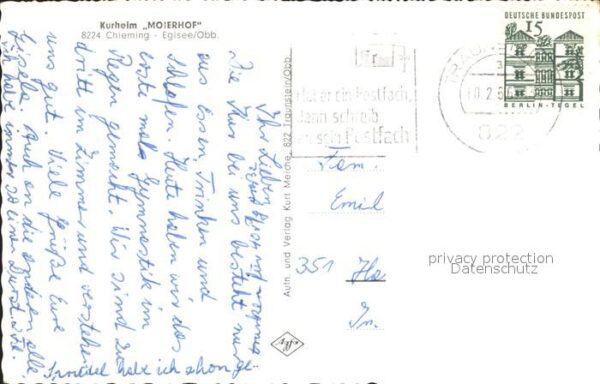 Kurheim „MOIERHOF"
8224 Chieming - Egisee/Obb.
Ihr Lieben
Die Kur bei uns besteht nur
aus Essen Trinken und
Schlafen. Heute haben wir das
erste mal Gymnastik im
Regen gemacht. Wir sind zu
dritt im Zimmer und verstehen
uns gut. Viele Grüße Eure
Gisela. Auch an die anderen alle
Strudel habe ich schon ge-
Aufn. und Verlag Kurt Merche, 822 Traunstein/Obb.
DEUTSCHE BUNDESPOST
15
BERLIN-TEGEL
TRAUN
10.2.66
822
Hat er ein Postfach,
dann schreib
Postfach
Fam.
Emil
351 Ha
In.
privacy protection
Datenschutz